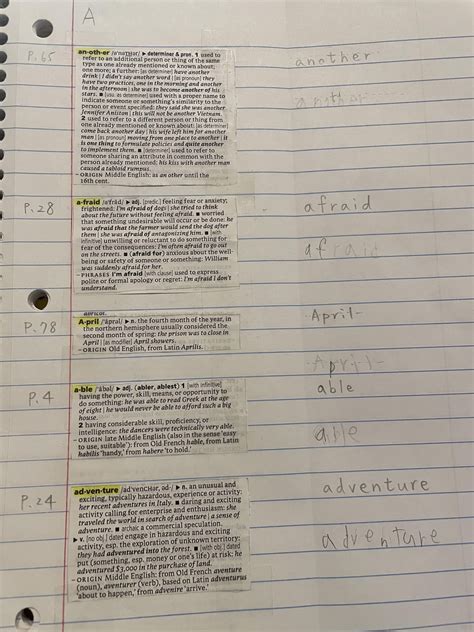 A
P.65
an·oth·er /əˈnəT͟Hər/ ▶ determiner & pron. 1 used to
refer to an additional person or thing of the same
type as one already mentioned or known about;
one more; a further: [as determiner] have another
drink | I didn't say another word | [as pronoun] they
have two practices, one in the morning and another
in the afternoon | she was to become another of his
stars. ■ [usu. as determiner] used with a proper name to
indicate someone or something's similarity to the
person or event specified: they said she was another
Jennifer Aniston | this will not be another Vietnam.
2 used to refer to a different person or thing from
one already mentioned or known about: [as determiner]
come back another day | his wife left him for another
man | [as pronoun] moving from one place to another | it
is one thing to formulate policies and quite another
to implement them. ■ [determiner] used to refer to
someone sharing an attribute in common with the
person already mentioned: his kiss with another man
caused a tabloid rumpus.
– ORIGIN Middle English: as an other until the
16th cent.
another
another
P.28
a·fraid /əˈfrād/ ▶ adj. [predic.] feeling fear or anxiety;
frightened: I'm afraid of dogs | she tried to think
about the future without feeling afraid. ■ worried
that something undesirable will occur or be done: he
was afraid that the farmer would send the dog after
them | she was afraid of antagonizing him. ■ [with
infinitive] unwilling or reluctant to do something for
fear of the consequences: I'm often afraid to go out
on the streets. ■ (afraid for) anxious about the well-
being or safety of someone or something: William
was suddenly afraid for her.
– PHRASES I'm afraid [with clause] used to express
polite or formal apology or regret: I'm afraid I don't
understand.
afraid
afraid
P.78
apricot.
A·pril /ˈāprəl/ ▶ n. the fourth month of the year, in
the northern hemisphere usually considered the
second month of spring: the prison was to close in
April | [as modifier] April showers.
– ORIGIN Old English, from Latin Aprilis.
April
April
P.4
a·ble /ˈābəl/ ▶ adj. (abler, ablest) 1 [with infinitive]
having the power, skill, means, or opportunity to
do something: he was able to read Greek at the age
of eight | he would never be able to afford such a big
house.
2 having considerable skill, proficiency, or
intelligence: the dancers were technically very able.
– ORIGIN late Middle English (also in the sense 'easy
to use, suitable'): from Old French hable, from Latin
habilis 'handy,' from habere 'to hold.'
able
able
P.24
ad·ven·ture /adˈvenCHər, əd-/ ▶ n. an unusual and
exciting, typically hazardous, experience or activity:
her recent adventures in Italy. ■ daring and exciting
activity calling for enterprise and enthusiasm: she
traveled the world in search of adventure | a sense of
adventure. ■ archaic a commercial speculation.
▶ v. [no obj.] dated engage in hazardous and exciting
activity, esp. the exploration of unknown territory:
they had adventured into the forest. ■ [with obj.] dated
put (something, esp. money or one's life) at risk: he
adventured $3,000 in the purchase of land.
– ORIGIN Middle English: from Old French aventure
(noun), aventurer (verb), based on Latin adventurus
'about to happen,' from advenire 'arrive.'
adventure
adventure